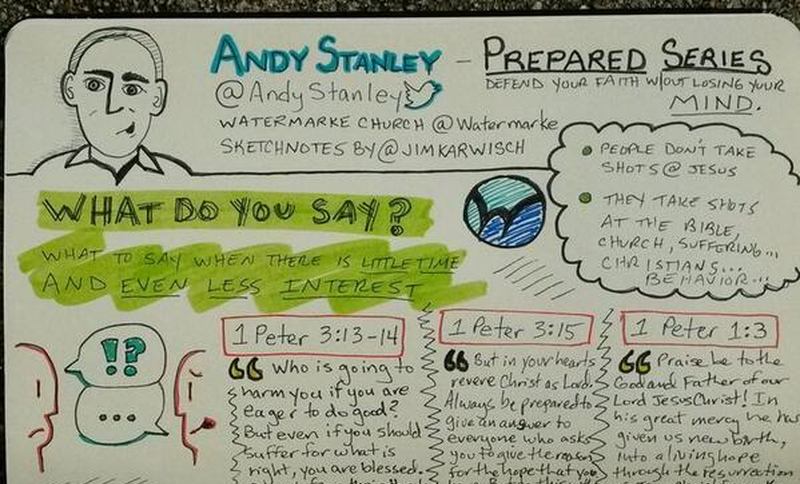 ANDY STANLEY - PREPARED SERIES
DEFEND YOUR FAITH W/OUT LOSING YOUR
MIND.
@AndyStanley
WATERMARKE CHURCH @Watermarke
SKETCHNOTES BY @JIMKARWISCH
PEOPLE DON'T TAKE
SHOTS @ JESUS
THEY TAKE SHOTS
AT THE BIBLE,
CHURCH, SUFFERING...
CHRISTIANS...
BEHAVIOR...
WHAT DO YOU SAY?
WHAT TO SAY WHEN THERE IS LITTLE TIME
AND EVEN LESS INTEREST
!?
...
1 Peter 3:13-14
"Who is going to
harm you if you are
eager to do good?
But even if you should
suffer for what is
right, you are blessed.
1 Peter 3:15
"But in your hearts
revere Christ as Lord.
Always be prepared to
give an answer to
everyone who asks
you to give the reason
for the hope that you
1 Peter 1:3
"Praise be to the
God and Father of our
Lord Jesus Christ! In
his great mercy he has
given us new birth,
into a living hope
through the resurrection